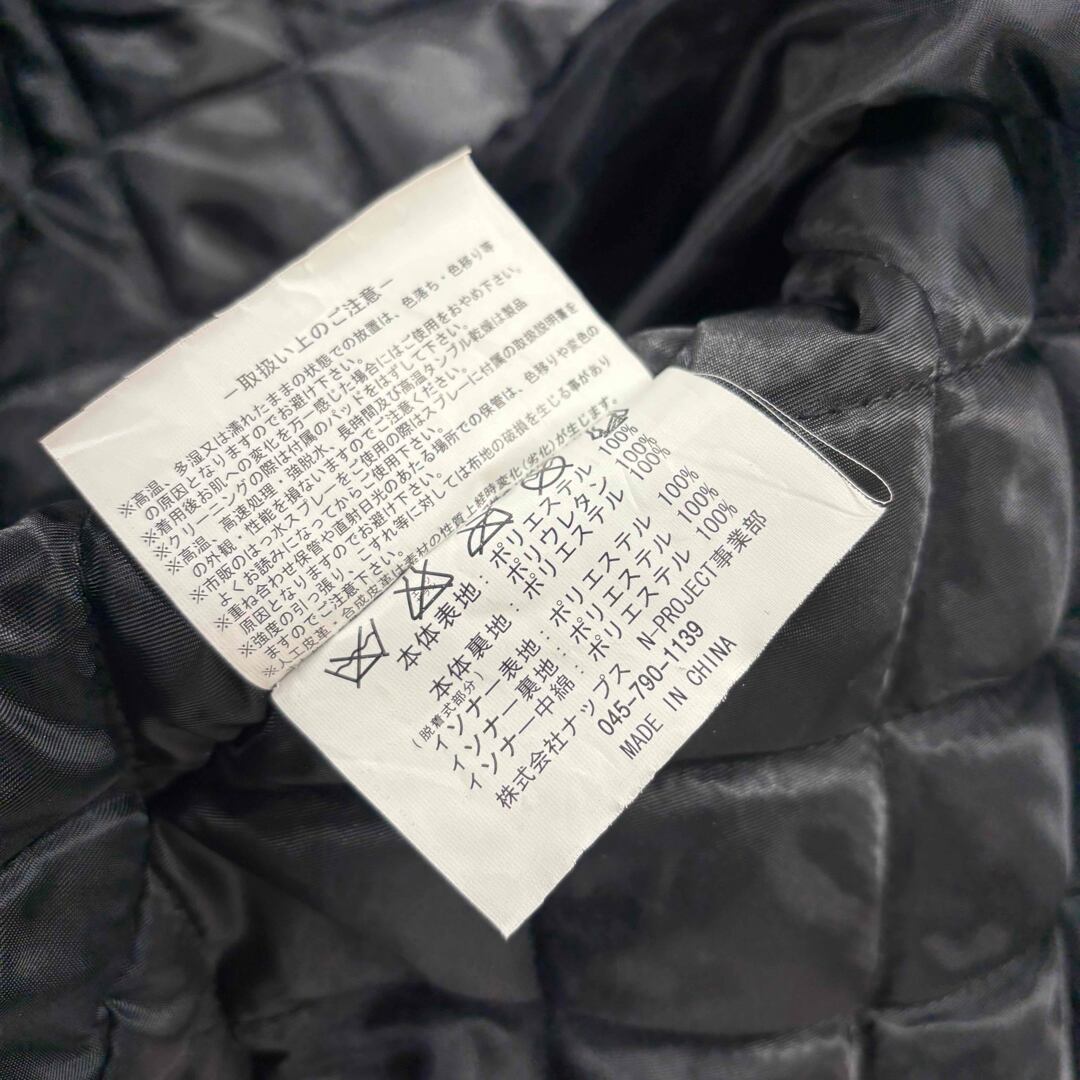 ―取扱い上のご注意―
※高温、多湿又は濡れたままの状態での放置は、色落ち・色移り等
の原因となりますのでお避け下さい。
※着用後お肌への変化を万一感じた場合にはご使用をおやめ下さい。
※クリーニングの際は付属のパッドをはずして下さい。
※高温、高速処理、強脱水、長時間及び高温タンブル乾燥は製品
の外観・性能を損ないますのでご注意ください。
※市販のはっ水スプレーをご使用の際はスプレーに付属の取扱説明書を
よくお読みになってからご使用下さい。
※重ね合わせ保管や直射日光のあたる場所での保管は、色移りや変色の
原因となりますのでお避け下さい。
※強度の引っ張り、こすれ等に対しては布地の破損を生じる事があり
ますのでご注意下さい。
※人工皮革・合成皮革は素材の性質上経時変化(劣化)が生じます。
本体表地：ポリエステル 100%
ポリウレタン 100%
本体裏地：ポリエステル 100%
(脱着式部分)
インナー表地：ポリエステル 100%
インナー裏地：ポリエステル 100%
インナー中綿：ポリエステル 100%
株式会社ナップス N-PROJECT事業部
045-790-1139
MADE IN CHINA